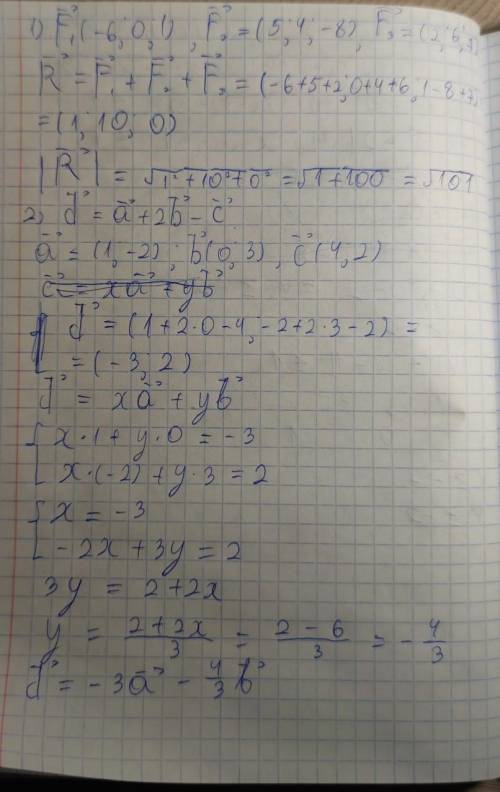 1) F⃗₁(-6; 0; 1), F⃗₂ = (5; 4; -8), F⃗₃ = (2; 6; 7)
R⃗ = F⃗₁ + F⃗₂ + F⃗₃ = (-6+5+2; 0+4+6; 1-8+7)
= (1; 10; 0)
|R⃗| = √1²+10²+0² = √1+100 = √101
2) d⃗ = a⃗ + 2b⃗ - c⃗
a⃗ = (1; -2); b⃗(0; 3), c⃗(4; 2)
c⃗ = xa⃗ + yb⃗
d⃗ = (1+2·0-4; -2+2·3-2) =
= (-3; 2)
d⃗ = xa⃗ + yb⃗
{ x·1 + y·0 = -3
x·(-2) + y·3 = 2
{ x = -3
-2x + 3y = 2
3y = 2+2x
y = (2+2x)/3 = (2-6)/3 = -4/3
d⃗ = -3a⃗ - 4/3 b⃗